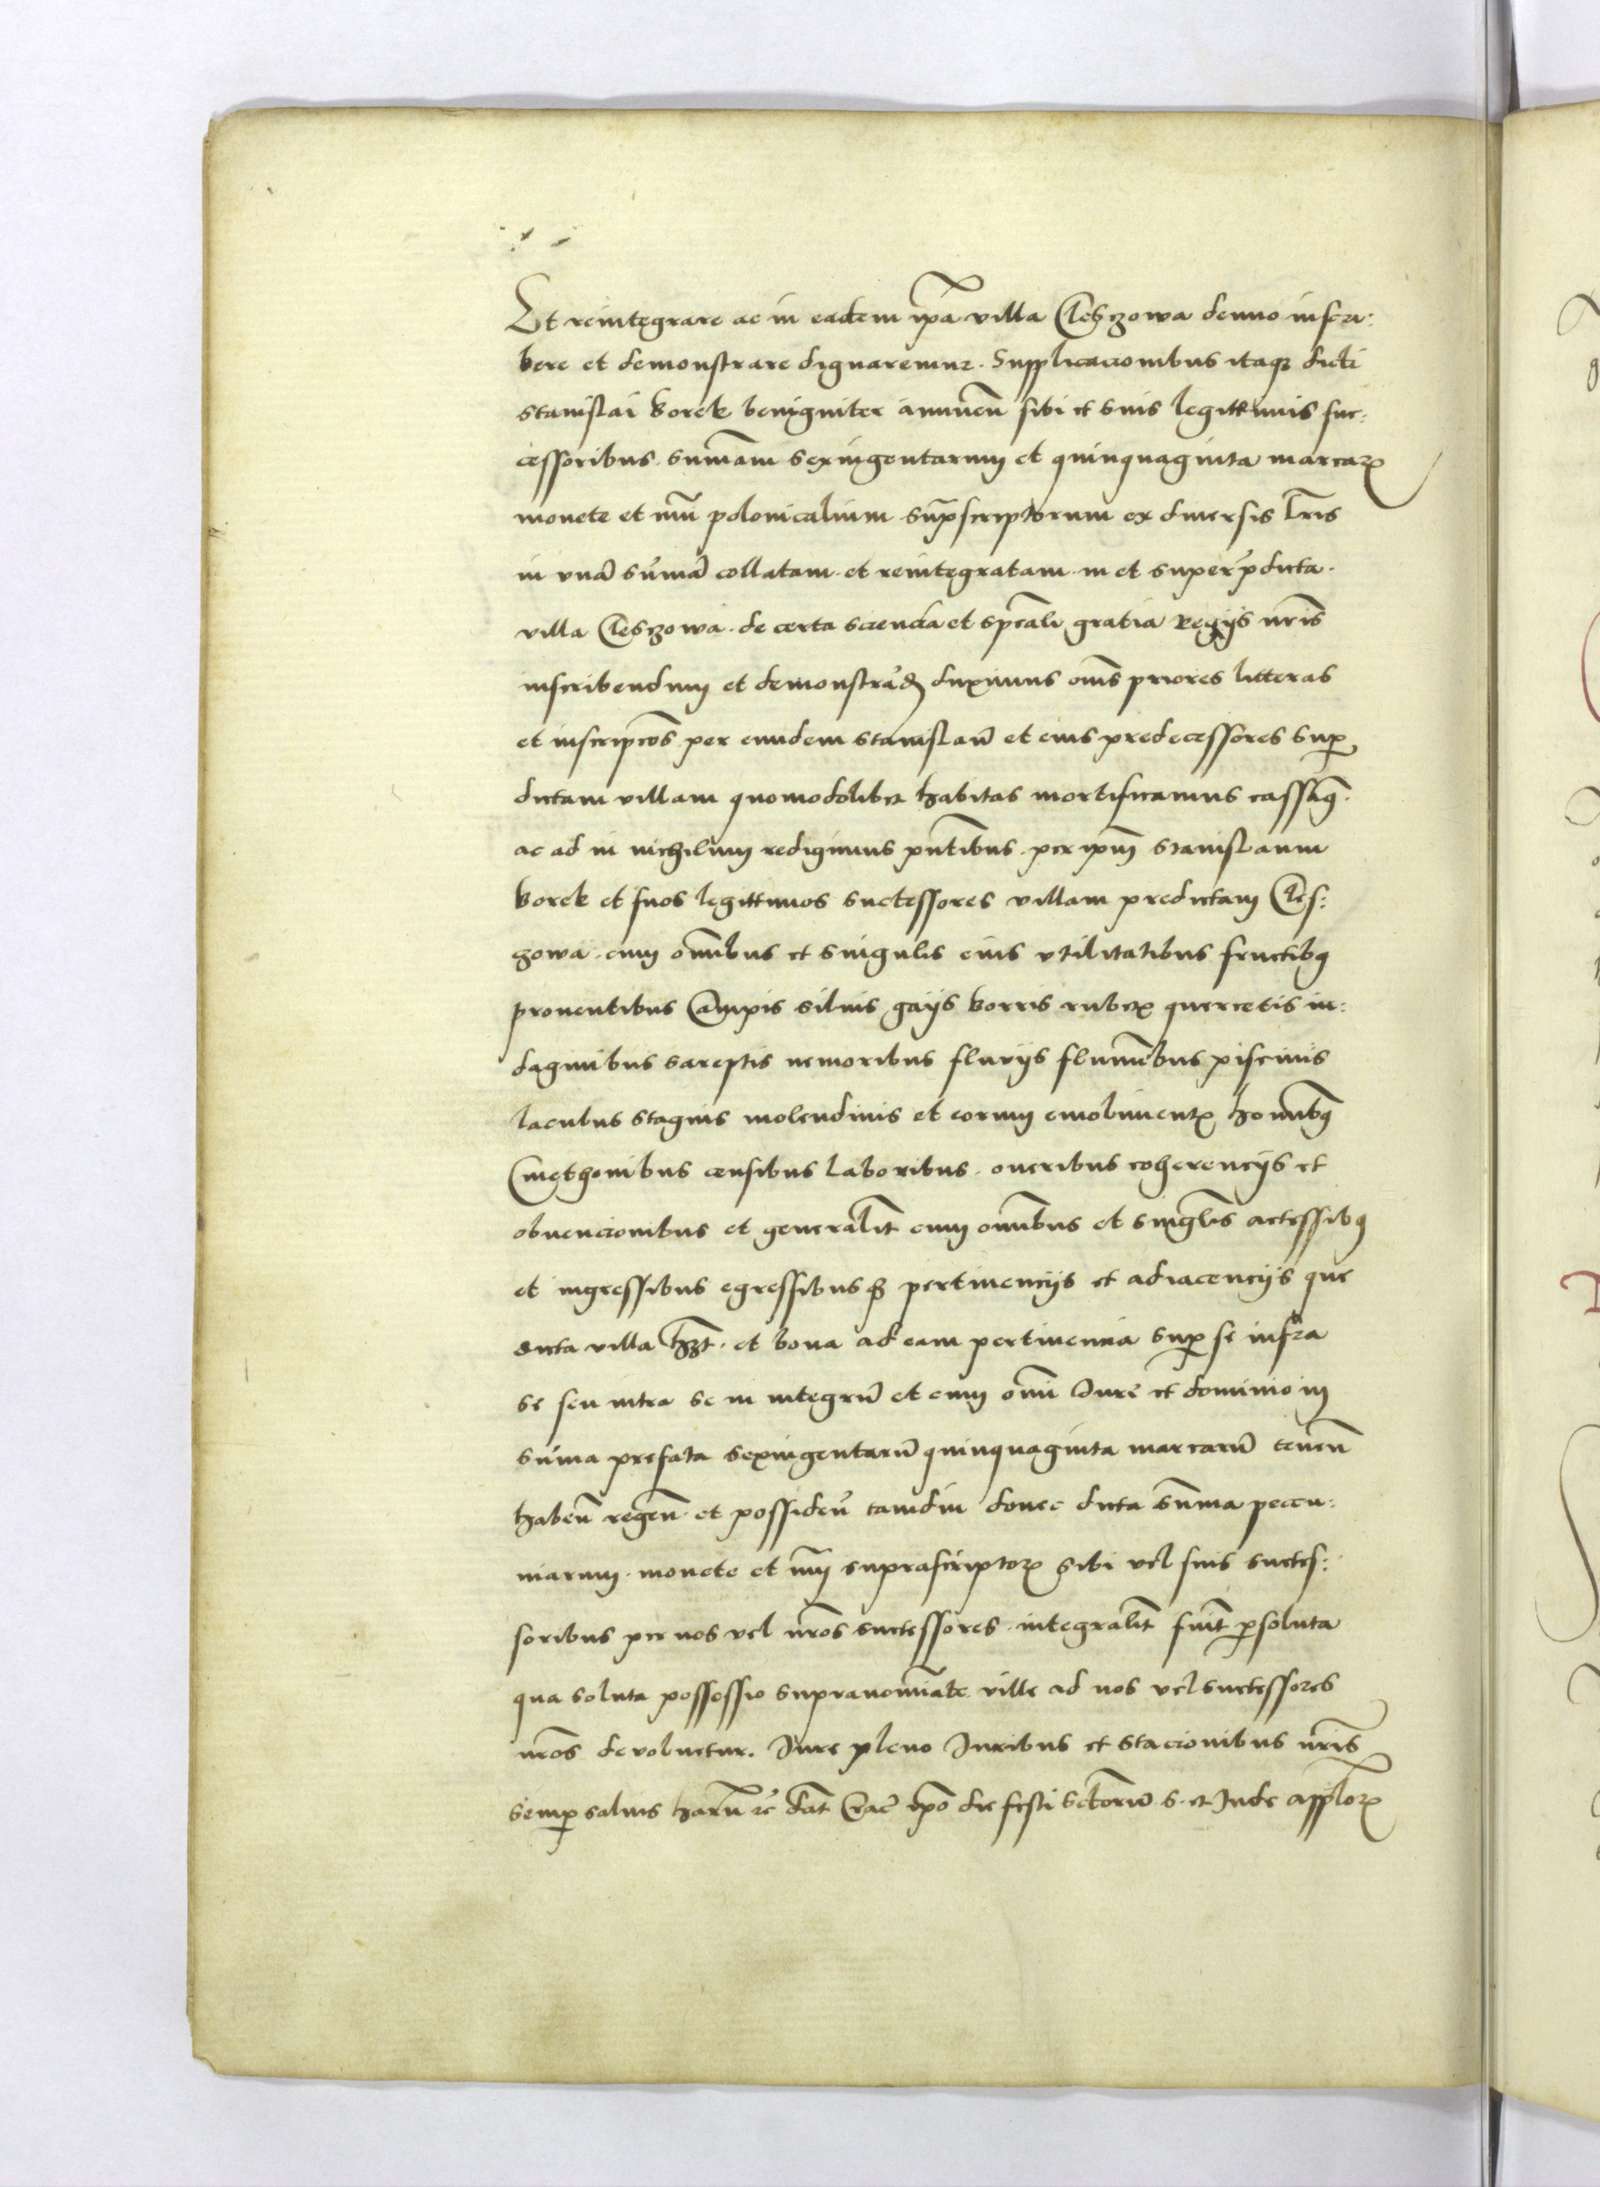 Et reintegrare ac in eadem ip̃a villa Cleszowa denuo inscri:
bere et demonstrare dignaremur. Supplicacionibus itaqꝫ dicti
Stanislai borek benigniter annuen̄ sibi et suis legittimis suc:
cessoribus. sum̄am sexingentarum et quinquaginta marcaꝝ
monete et nūi polonicalium sup̄scriptorum ex diuersis l̄ris
in vnā sūmā collatam. et reintegratam. in et super p̄dicta.
villa Cleszowa. de certa sciencia et sp̄cali gratia Regijs nr̄is
inscribendum et demonstrād̄ duximus om̄s priores litteras
et inscripc̄os per eundem Stanislaū et eius predecessores sup̱
dictam villam quomodolibet habitas mortificamus cassāqꝫ.
ac ad in nichilum redigimus pn̄tibus. per ip̄m Stanislaum
borek et suos legittimos successores villam predictam Cles:
zowa. cum om̄ibus et singulis eius vtilitatibus fructibꝰ
prouentibus Campis siluis gaijs borris rubetꝭ quercetis in:
daginibus sareptis nemoribus fluvijs flumī̄bus piscinis
lacubus stagnis molendinis et eorum emolimentꝭ homībꝰ
Cmethonibus censibus laboribus. oneribus coherencijs et
obuencionibus et generalit̄ cum om̄ibus et singl̄is accessibꝰ
et ingressibus egressibusqꝫ pertinencijs et adiacencijs que
dicta villa hꝫt. et bona ad eam pertinencia sup̱ se infra
se seu intra se in integrū et cum om̄i Jure et dominio in
sūma prefata sexingentarū quinquaginta marcarū tenen̄
haben̄ regen̄ et possiden̄ tamdiu donec dicta sum̄a peccu:
niarum. monete et nūi suprascriptoꝝ sibi vel suis succes:
soribus per nos vel nr̄os successores. integralit̄ fuit̄ p̱soluta
qua soluta possessio supranomīate ville ad nos vel successores
nr̄os deuoluetur. Jure pleno Juribus et stacionibus nr̄is
semp̱ saluis harū ꝛc̄ dat̄ Crac̄ ip̄o die festi sc̄torū S. et Jude ap̄ploꝝ